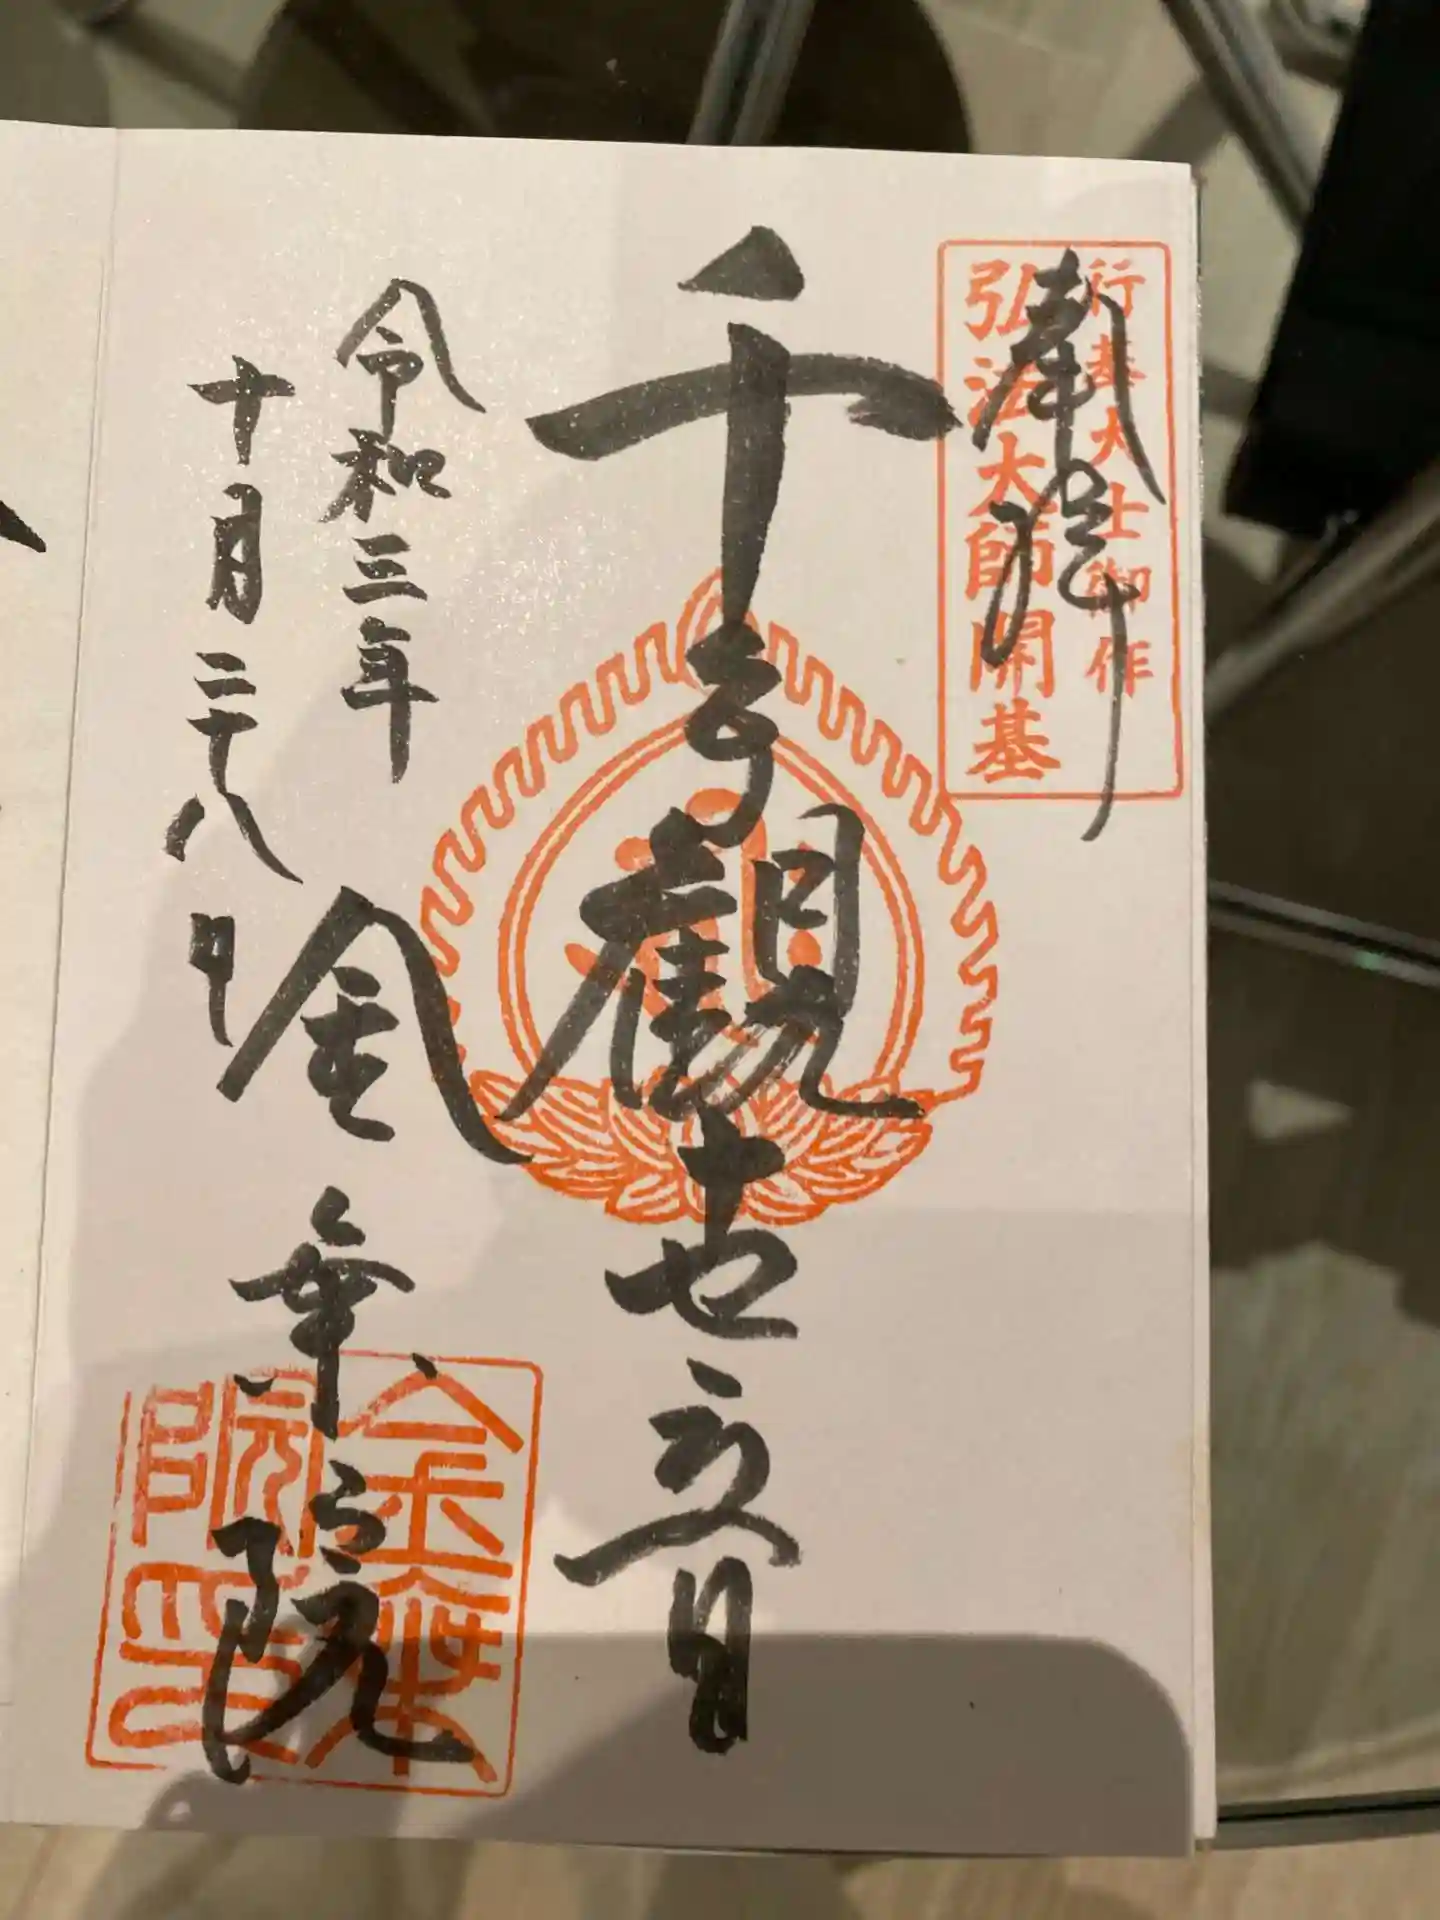 奉拝
行基大士御作
弘法大師開基
千手觀世音
令和三年
十月二十八日
金乗院
金乘院印